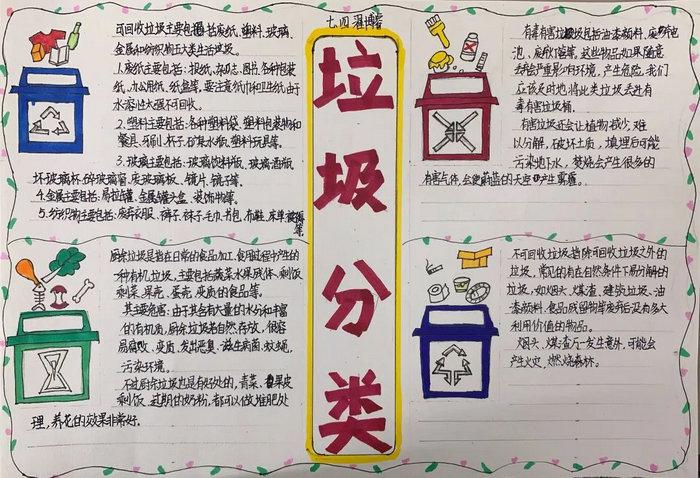 七四
垃圾分类
可回收垃圾主要包括废纸、塑料、玻璃、
金属和纺织物五大类生活垃圾。
1.废纸主要包括:报纸、杂志、图书、各种包装
纸、办公用纸、纸盒等。要注意纸巾和卫生纸由于
水溶性太强不可回收。
2.塑料主要包括:各种塑料袋、塑料包装物和
餐具、牙刷、杯子、矿泉水瓶、塑料玩具等。
3.玻璃主要包括:玻璃饮料瓶、玻璃酒瓶
坏玻璃杯、碎玻璃窗、废玻璃板、镜片、镜子等。
4.金属主要包括:易拉罐、金属罐头盒、装饰物等。
5.纺织物主要包括:废弃衣服、裤子、袜子、毛巾、书包、布鞋、床单、被褥
等。
有毒有害垃圾包括油漆颜料、废电
池、废荧灯管等。这些物品如果随意
丢弃会严重影响环境,产生危险。我们
应该及时地将此类垃圾丢进有
毒有害垃圾桶。
有害垃圾还会让植物减少,难
以分解,破坏土质,填埋后可能
污染地下水,焚烧会产生很多的
有害气体,会使蔚蓝的天空中产生雾霾。
厨余垃圾是指在日常的食品加工、食用过程中产生的
一种有机垃圾,主要包括蔬菜水果残体、剩饭
剩菜、果壳、蛋壳、变质的食品等。
其主要危害:由于其含有大量的水分和丰富
的有机质,厨余垃圾若自然存放,很容
易腐败、变质、发出恶臭、滋生病菌、蚊蝇,
污染环境。
不过厨余垃圾也是有好处的,青菜、果皮
剩饭、过期的奶粉,都可以做堆肥处
理,养花的效果非常好。
不可回收垃圾指除可回收垃圾之外的
垃圾,常见的有在自然条件下易分解的
垃圾,如烟头、煤渣、建筑垃圾、油
漆颜料、食品残留物等废弃后没有多大
利用价值的物品。
烟头、煤渣万一发生意外,可能会
产生火灾,燃烧森林。